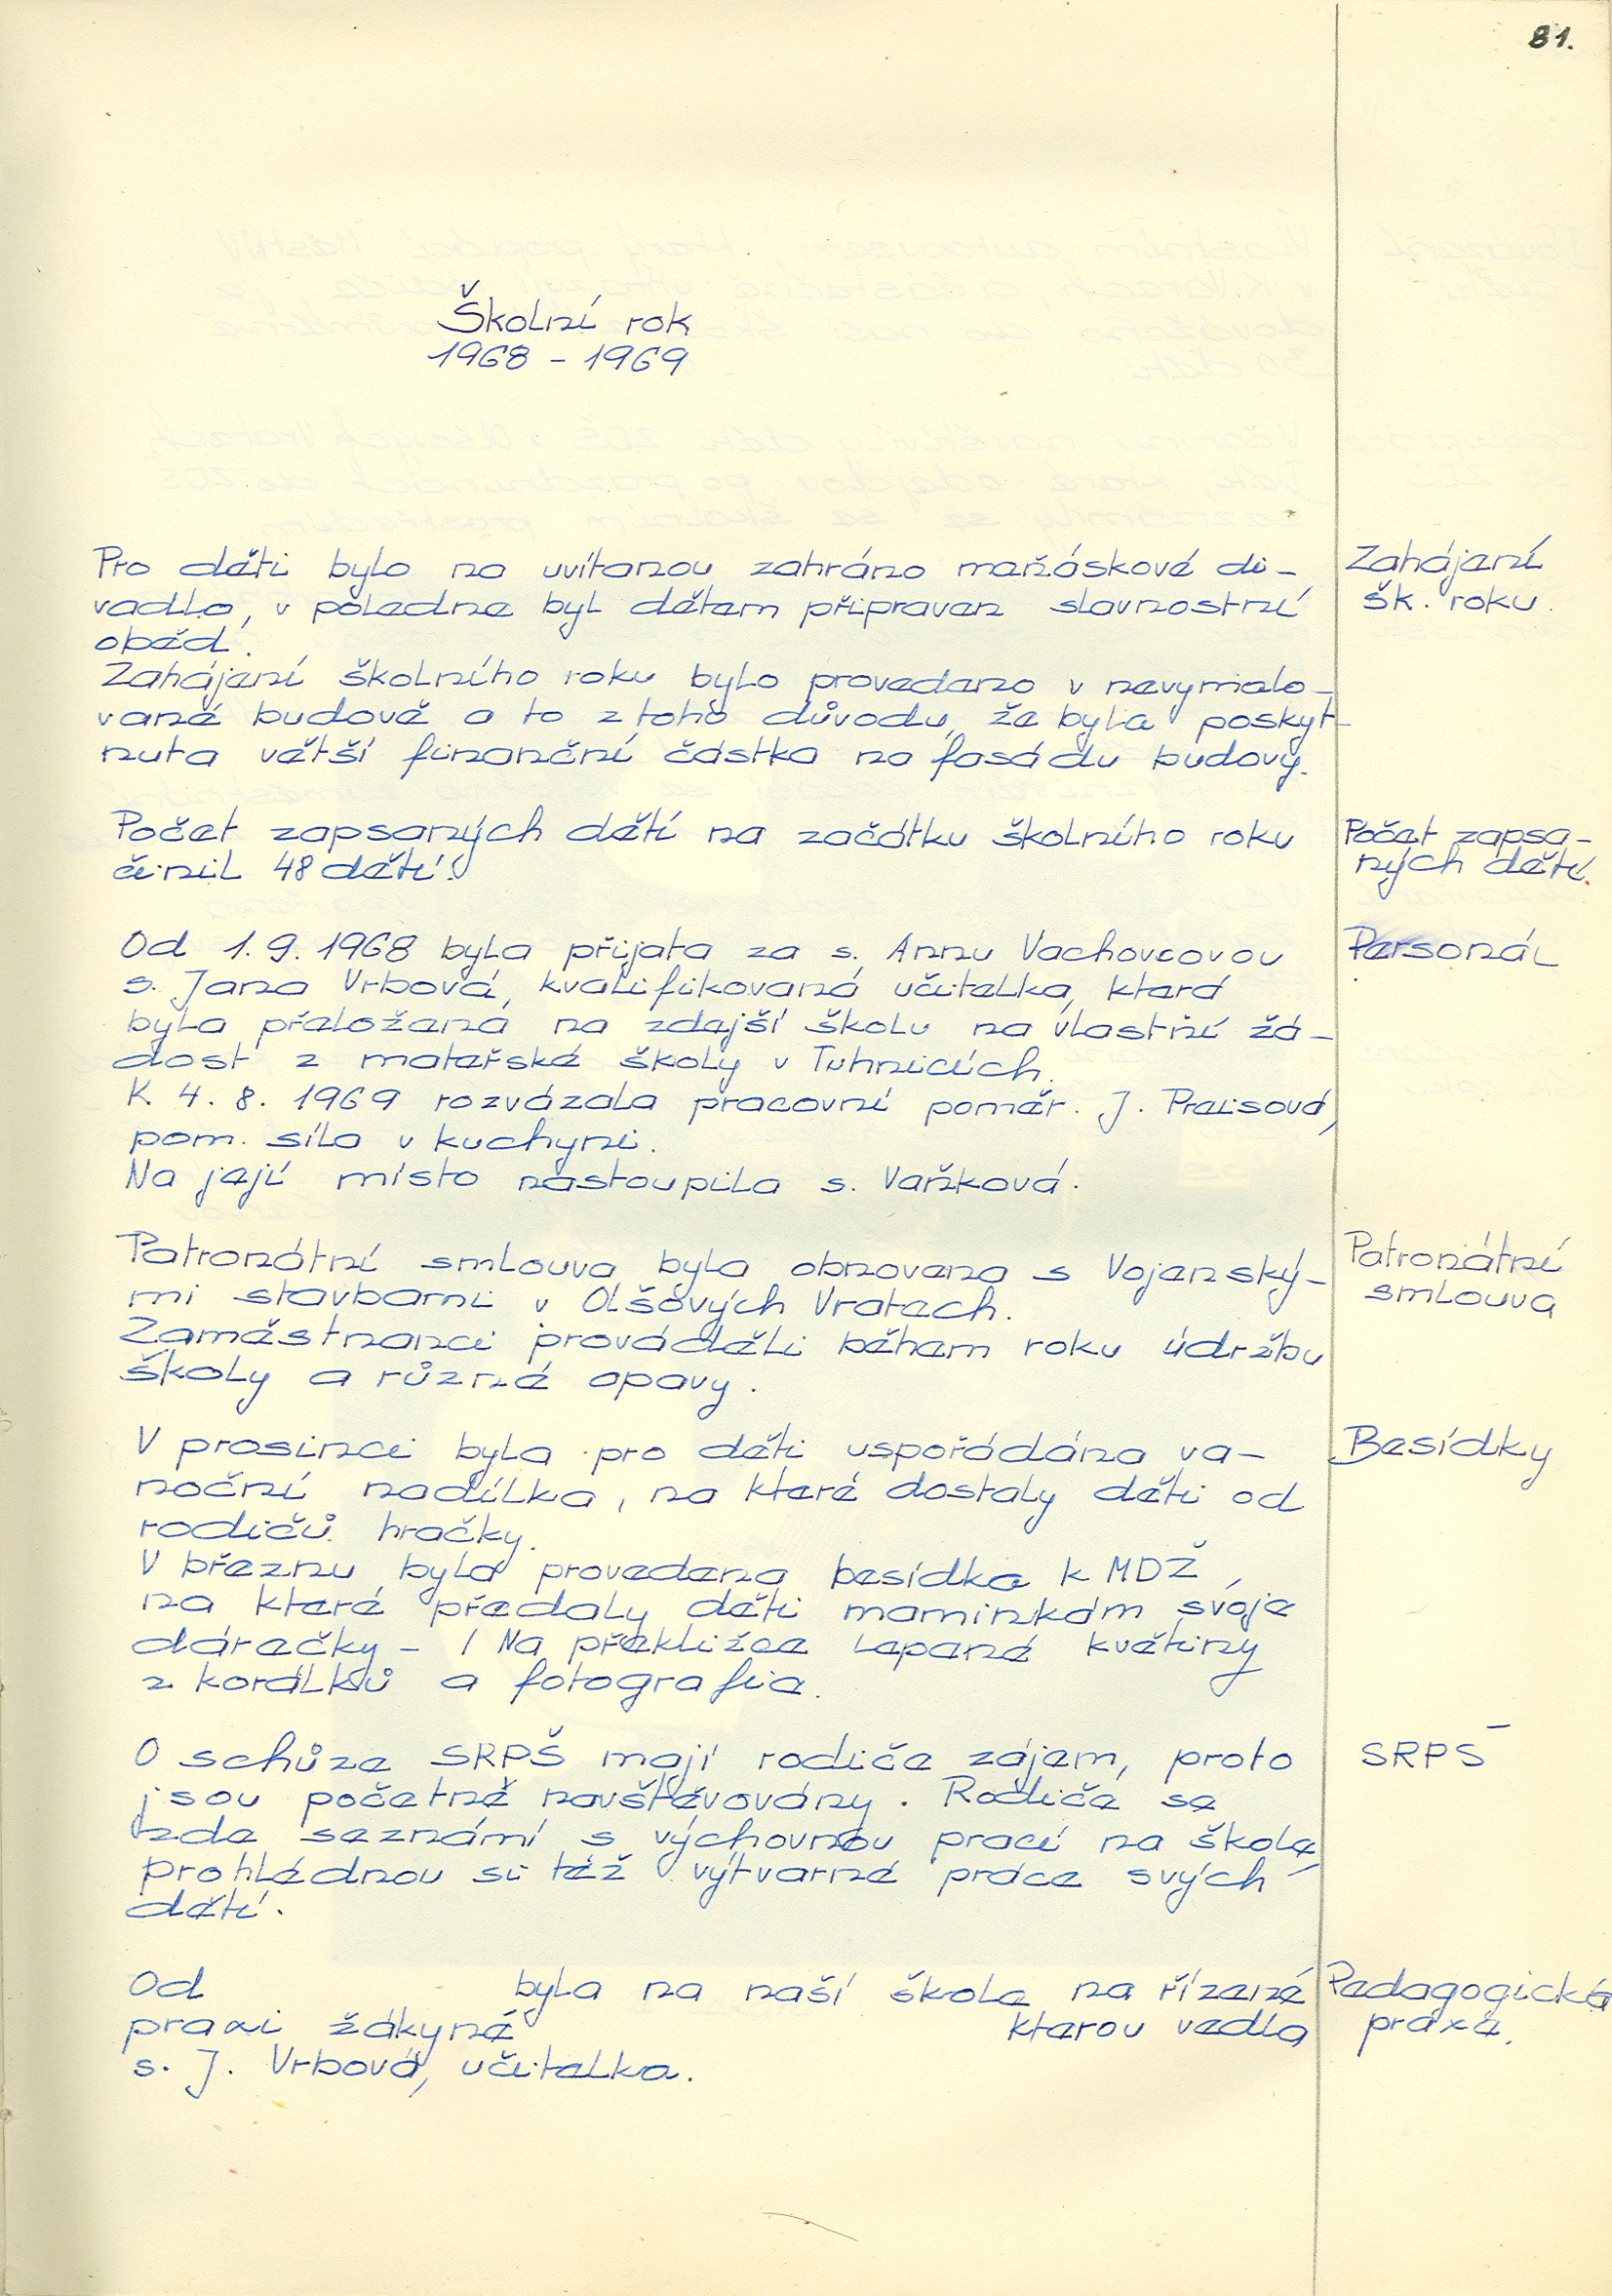 81.
Školní rok
1968 - 1969
Pro děti bylo na uvítanou zahráno maňáskové di-
vadlo, v poledne byl dětem připraven slavnostní
oběd.
Zahájení
šk. roku.
Zahájení školního roku bylo provedeno v nevymalo-
vané budově a to z toho důvodu, že byla poskyt-
nuta větší finanční částka na fasádu budovy.
Počet zapsaných dětí na začátku školního roku
činil 48 dětí.
Počet zapsa-
ných dětí.
Od 1.9.1968 byla přijata za s. Annu Vachovcovou
s. Jana Vrbová, kvalifikovaná učitelka, která
byla přeložena na zdejší školu na vlastní žá-
dost z mateřské školy v Tuhnicích.
K 4.8.1969 rozvázala pracovní poměr J. Preisová,
pom. síla v kuchyni.
Na její místo nastoupila s. Vaňková.
Personál
Patronátní smlouva byla obnovena s Vojenský-
mi stavbami v Olšových Vratech.
Zaměstnanci prováděli během roku údržbu
školy a různé opavy.
Patronátní
smlouva
V prosinci byla pro děti uspořádána va-
noční nadílka, na které dostaly děti od
rodičů hračky.
V březnu byla provedena besídka k MDŽ,
na které předaly děti maminkám svoje
dárečky - / Na překližce lepené květiny
z korálků a fotografie.
Besídky
O schůze SRPŠ mají rodiče zájem, proto
jsou početně navštěvovány. Rodiče se
zde seznámí s výchovnou prací na škole,
prohlédnou si též výtvarné práce svých
dětí.
SRPŠ
Od byla na naší škole na řízené
praxi žákyně kterou vedla
s. J. Vrbová, učitelka.
Pedagogická
praxe.